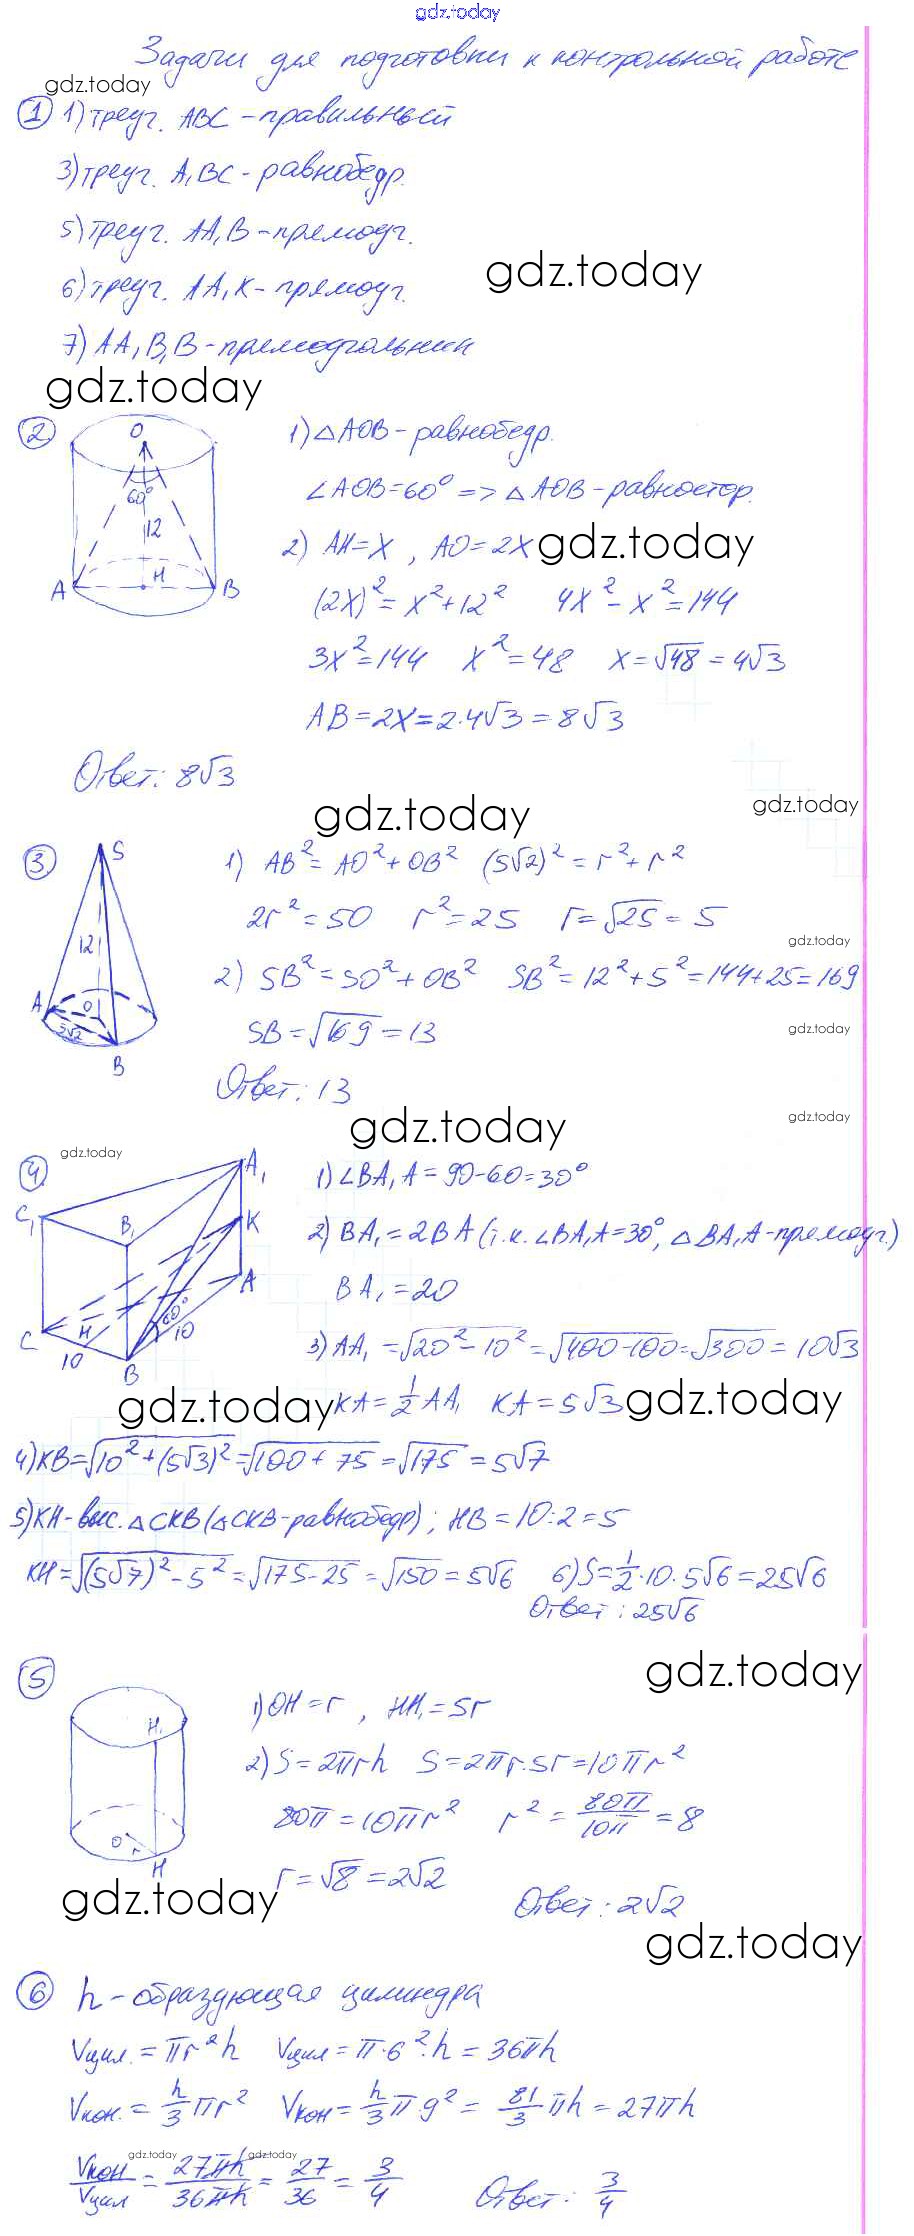 gdz.today
Задачи для подготовки к контрольной работе
gdz.today
① 1) треуг. ABC - правильный
3) треуг. A₁BC - равнобедр.
5) треуг. AA₁B - прямоуг.
gdz.today
6) треуг. AA₁K - прямоуг.
7) AA₁B₁B - прямоугольник
gdz.today
② O 60° 12 A H B
1) △AOB - равнобедр.
∠AOB = 60° => △AOB - равностор.
2) AH = x, AO = 2x gdz.today
(2x)² = x² + 12² 4x² - x² = 144
3x² = 144 x² = 48 x = √48 = 4√3
AB = 2x = 2·4√3 = 8√3
Ответ: 8√3
gdz.today gdz.today
③ S 12 A O 5√2 B
1) AB² = AO² + OB² (5√2)² = r² + r²
2r² = 50 r² = 25 r = √25 = 5
gdz.today
2) SB² = SO² + OB² SB² = 12² + 5² = 144 + 25 = 169
SB = √169 = 13
gdz.today
Ответ: 13
gdz.today gdz.today
gdz.today
④ A₁ C₁ B₁ K A C H 60° 10 10 B
1) ∠BA₁A = 90 - 60 = 30°
2) BA₁ = 2BA (т.к. ∠BA₁A = 30°, △BA₁A - прямоуг.)
BA₁ = 20
3) AA₁ = √20² - 10² = √400 - 100 = √300 = 10√3
gdz.today KA = ½ AA₁ KA = 5√3 gdz.today
4) KB = √10² + (5√3)² = √100 + 75 = √175 = 5√7
5) KH - выс. △CKB (△CKB - равнобедр); HB = 10:2 = 5
KH = √(5√7)² - 5² = √175 - 25 = √150 = 5√6 6) S = ½·10·5√6 = 25√6
Ответ: 25√6
gdz.today
⑤ H₁ O r H
1) OH = r, HH₁ = 5r
2) S = 2πrh S = 2πr·5r = 10πr²
80π = 10πr² r² = 80π/10π = 8
r = √8 = 2√2
gdz.today Ответ: 2√2
gdz.today
⑥ h - образующая цилиндра
Vцил. = πr²h Vцил = π·6²·h = 36πh
Vкон. = h/3 πr² Vкон = h/3 π 9² = 81/3 πh = 27πh
gdz.today gdz.today
Vкон/Vцил = 27πh/36πh = 27/36 = 3/4 Ответ: 3/4